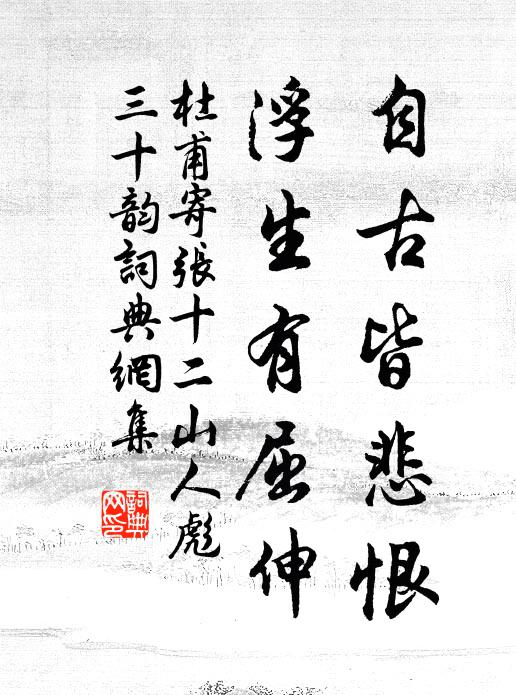 自古皆悲恨
浮生有屈伸
杜甫寄張十二山人彪
三十韵詞典網集
詞典網印